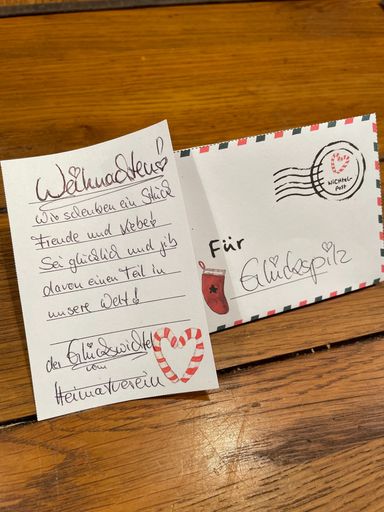 Weihnachten!
Wir schenken ein Stück
Freude und Liebe!
Sei glücklich und gib
davon einen Teil in
unsere Welt!
der Glückswichtel
vom
Heimatverein
WICHTEL-
POST
Für
Glückspilz